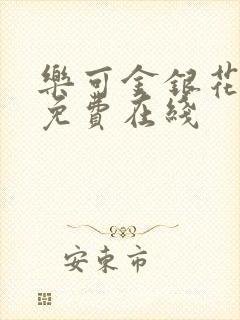 樂可金銀花
免費在綫
安東市